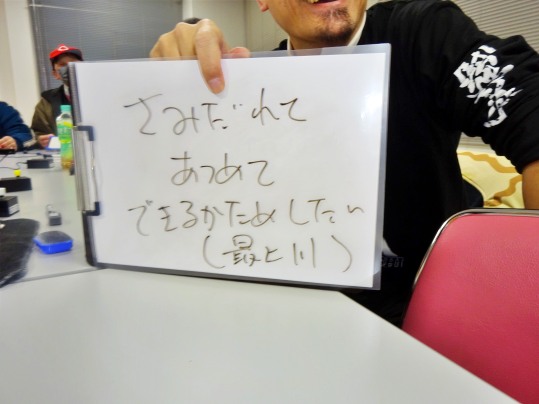 さみだれて
あつめて
できるかためしたい
(最上川)